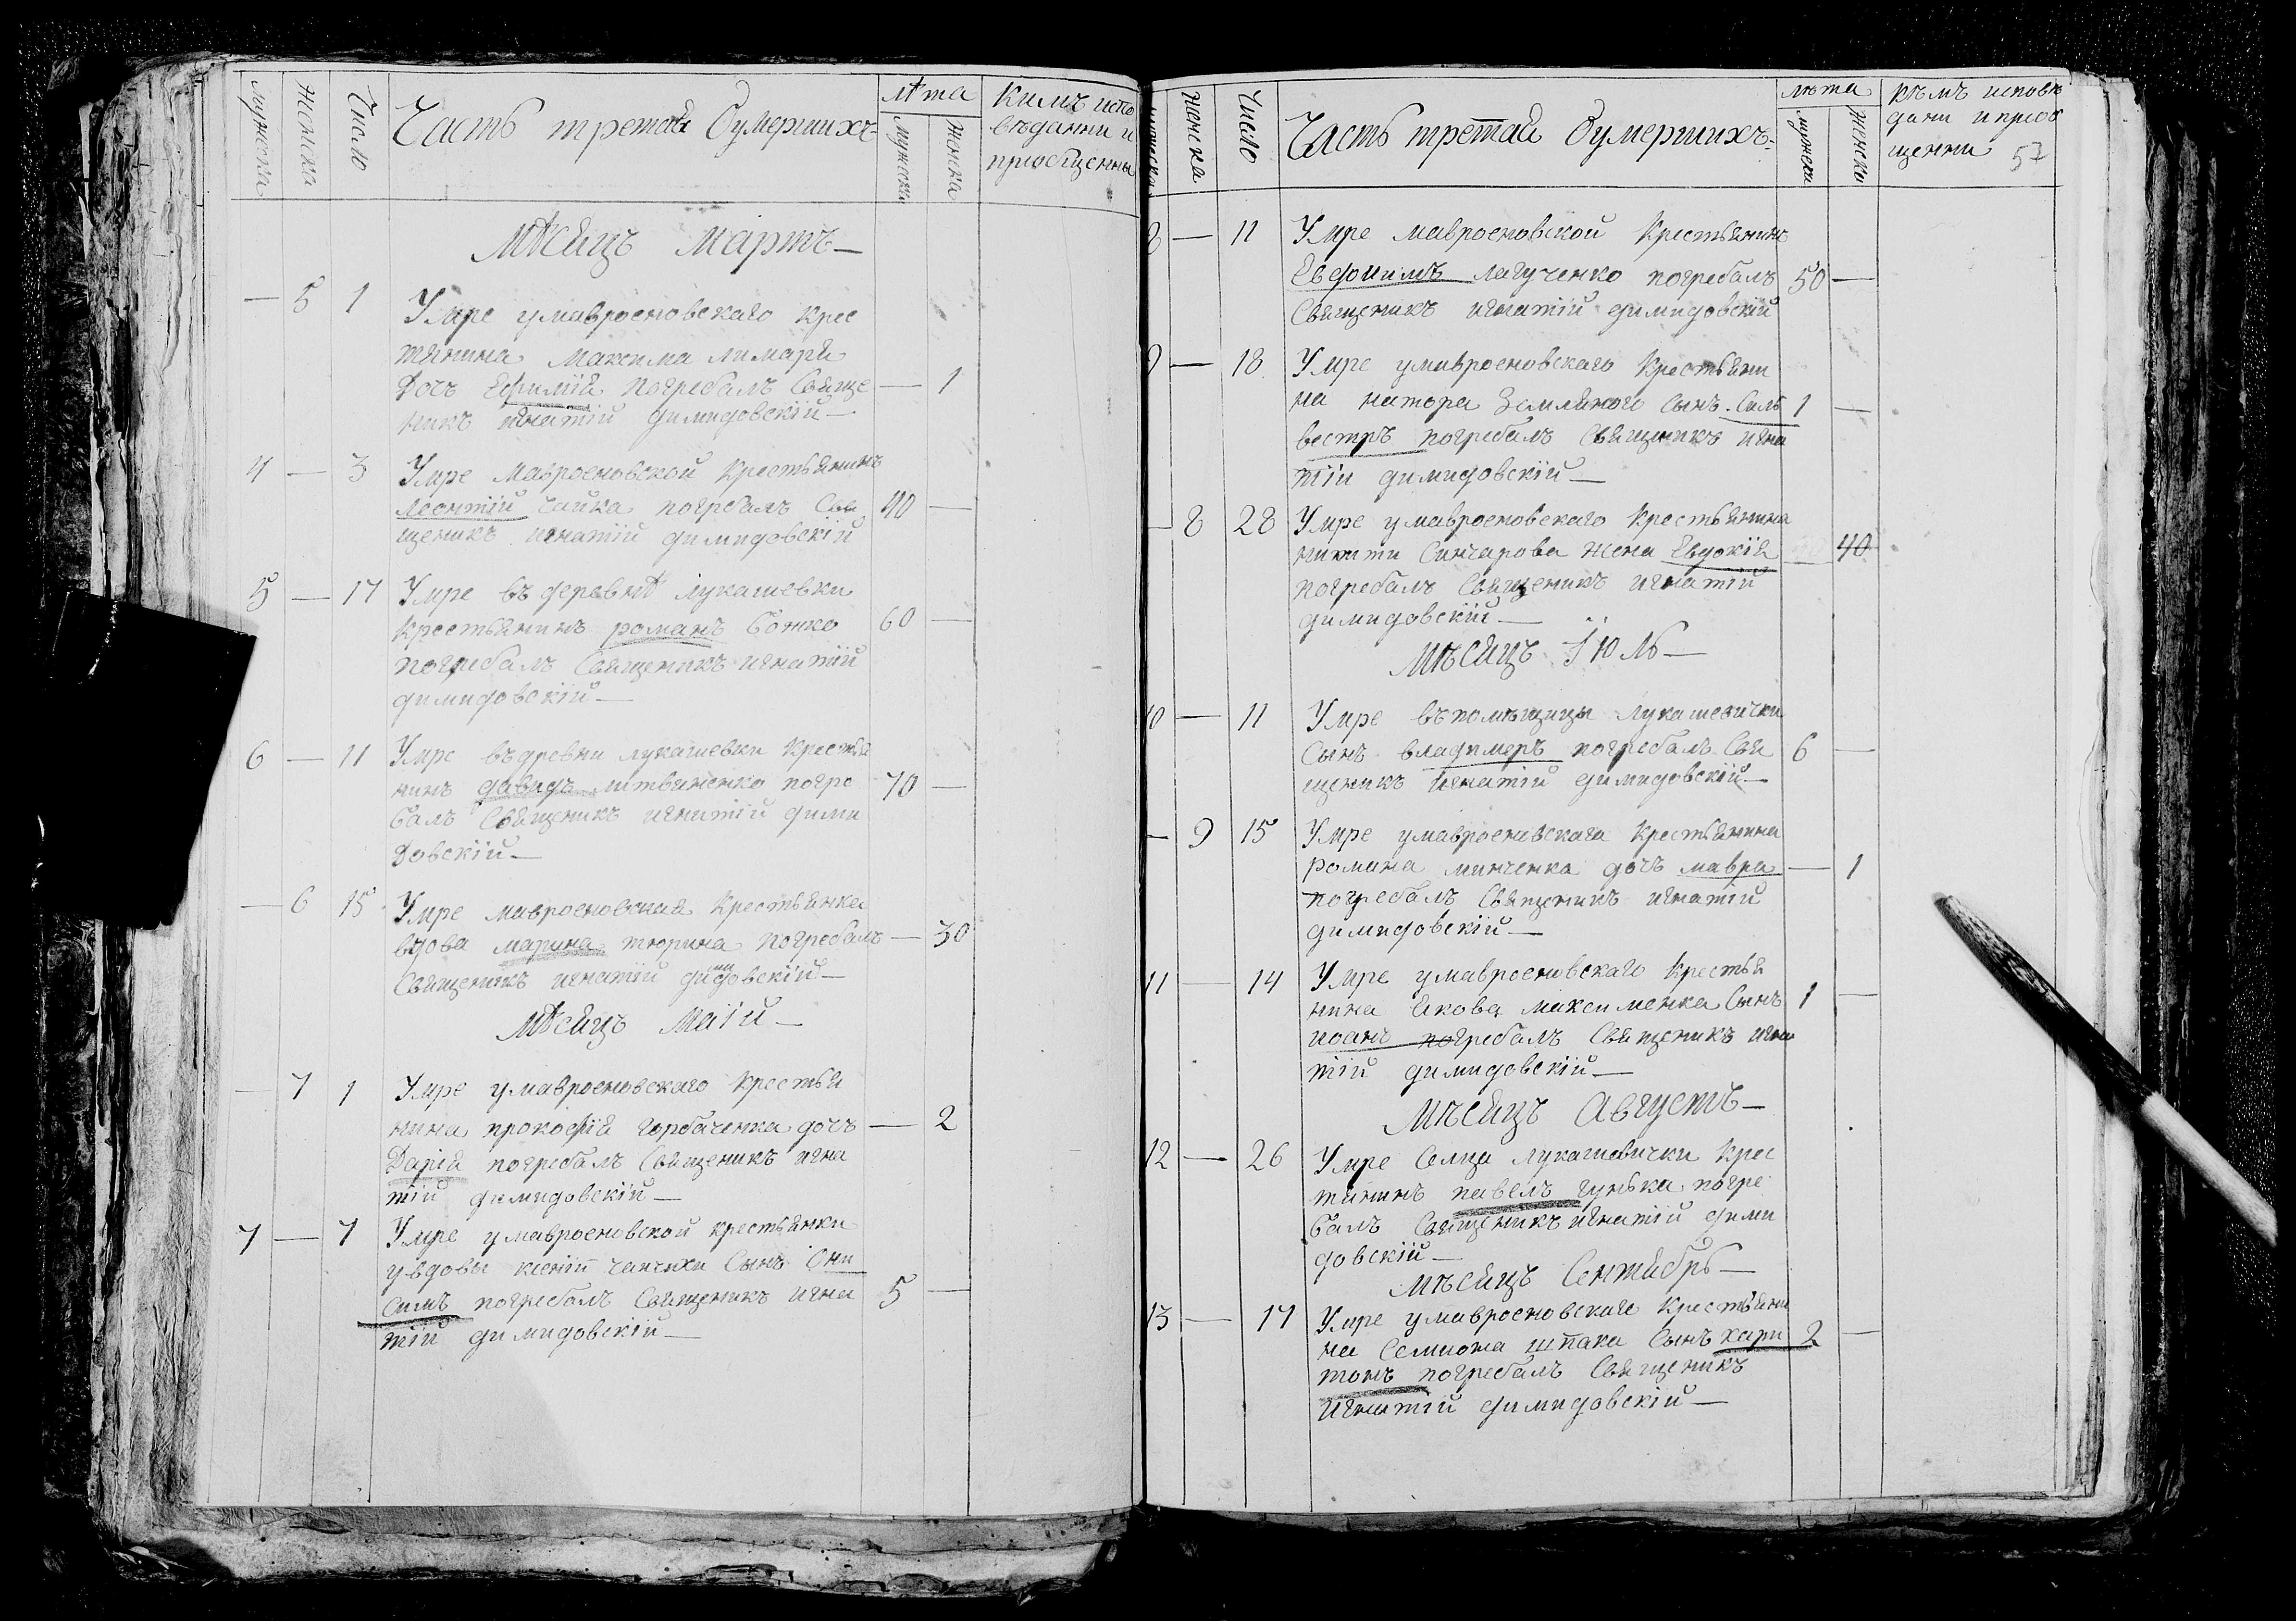 мужеска
женска
Число
Часть третая Оумершихъ
лѣта
мужеска
женска
Кимъ испо
вѣданни и
приобщенны
Мѣсяцъ Мартъ
— 5 1 Умре умавроеновскаго крес
тянина Максима лимаря
дочъ Ефимїя погребалъ Свяще — 1
никъ игнатїй димидовскїй
4 — 3 Умре Мавроеновской Крестьянинъ
Леонтїй чайка погребалъ Свя 40 —
щеникъ игнатїй димидовскїй
5 — 17 Умре въ деревнѣ лукашевки
крестьянинъ романъ божко 60 —
погребалъ Священикъ игнатїй
димидовскїй
6 — 11 Умре въдревни лукашевки Крестья
нинъ давидъ литвиненко погре 70 —
балъ Священикъ игнатїй дими
довскїй
— 6 15 Умре мавроеновская Крестьянка
вдова марина тюрина погребалъ — 30
Священикъ игнатїй димидовскїй
Мѣсяцъ Маїй
— 7 1 Умре умавроеновскаго Крестья
нина прокофїя горбаченка дочъ — 2
Дарїя погребалъ Священикъ игна
тїй димидовскїй
7 — 7 Умре умавроеновской крестьянки
увдовы ксенїи Сынъ Они
симъ погребалъ Священикъ игна 5 —
тїй димидовскїй
мужеска
женска
Число
Часть третая Оумершихъ
лѣта
мужеска
женска
Кѣмъ исповѣ
дани и приоб
щенни 57
8 — 11 Умре мавроеновской Крестьянинъ
Евфоимъ лагученко погребалъ 50 —
Священикъ игнатїй димидовскїй
9 — 18 Умре умавроеновскаго Крестьяни
на Землянаго Сынъ Силь 1 —
вестръ погребалъ Священикъ игна
тїй димидовскїй
— 8 28 Умре умавроеновскаго Крестьянина
никити Синчарова жена Евдокїя 40
погребалъ Священикъ игнатїй
димидовскїй
Мѣсяцъ Їюль
10 — 11 Умре въпомѣщицы лукашевички
Сынъ владимеръ погребалъ Свя 6 —
щеникъ Игнатїй димидовскїй
— 9 15 Умре умавроеновскага Крестьянина
романа минченка дочъ мавра — 1
погребалъ Священикъ игнатїй
димидовскїй
11 — 14 Умре умавроеновскаго Крестья
нина Якова максименка Сынъ 1 —
иоанъ погребалъ Священикъ игна
тїй димидовскїй
Мѣсяцъ Августъ
12 — 26 Умре Селца лукашевички крес
тянинъ павелъ гунька погре
балъ Священикъ игнатїй дими
довскїй
Мѣсяцъ Сентябрь
13 — 17 Умре умавроеновскаго Крестьяни
на Семиона шпака Сынъ хари 2 —
тонъ погребалъ Священикъ
Игнатїй димидовскїй